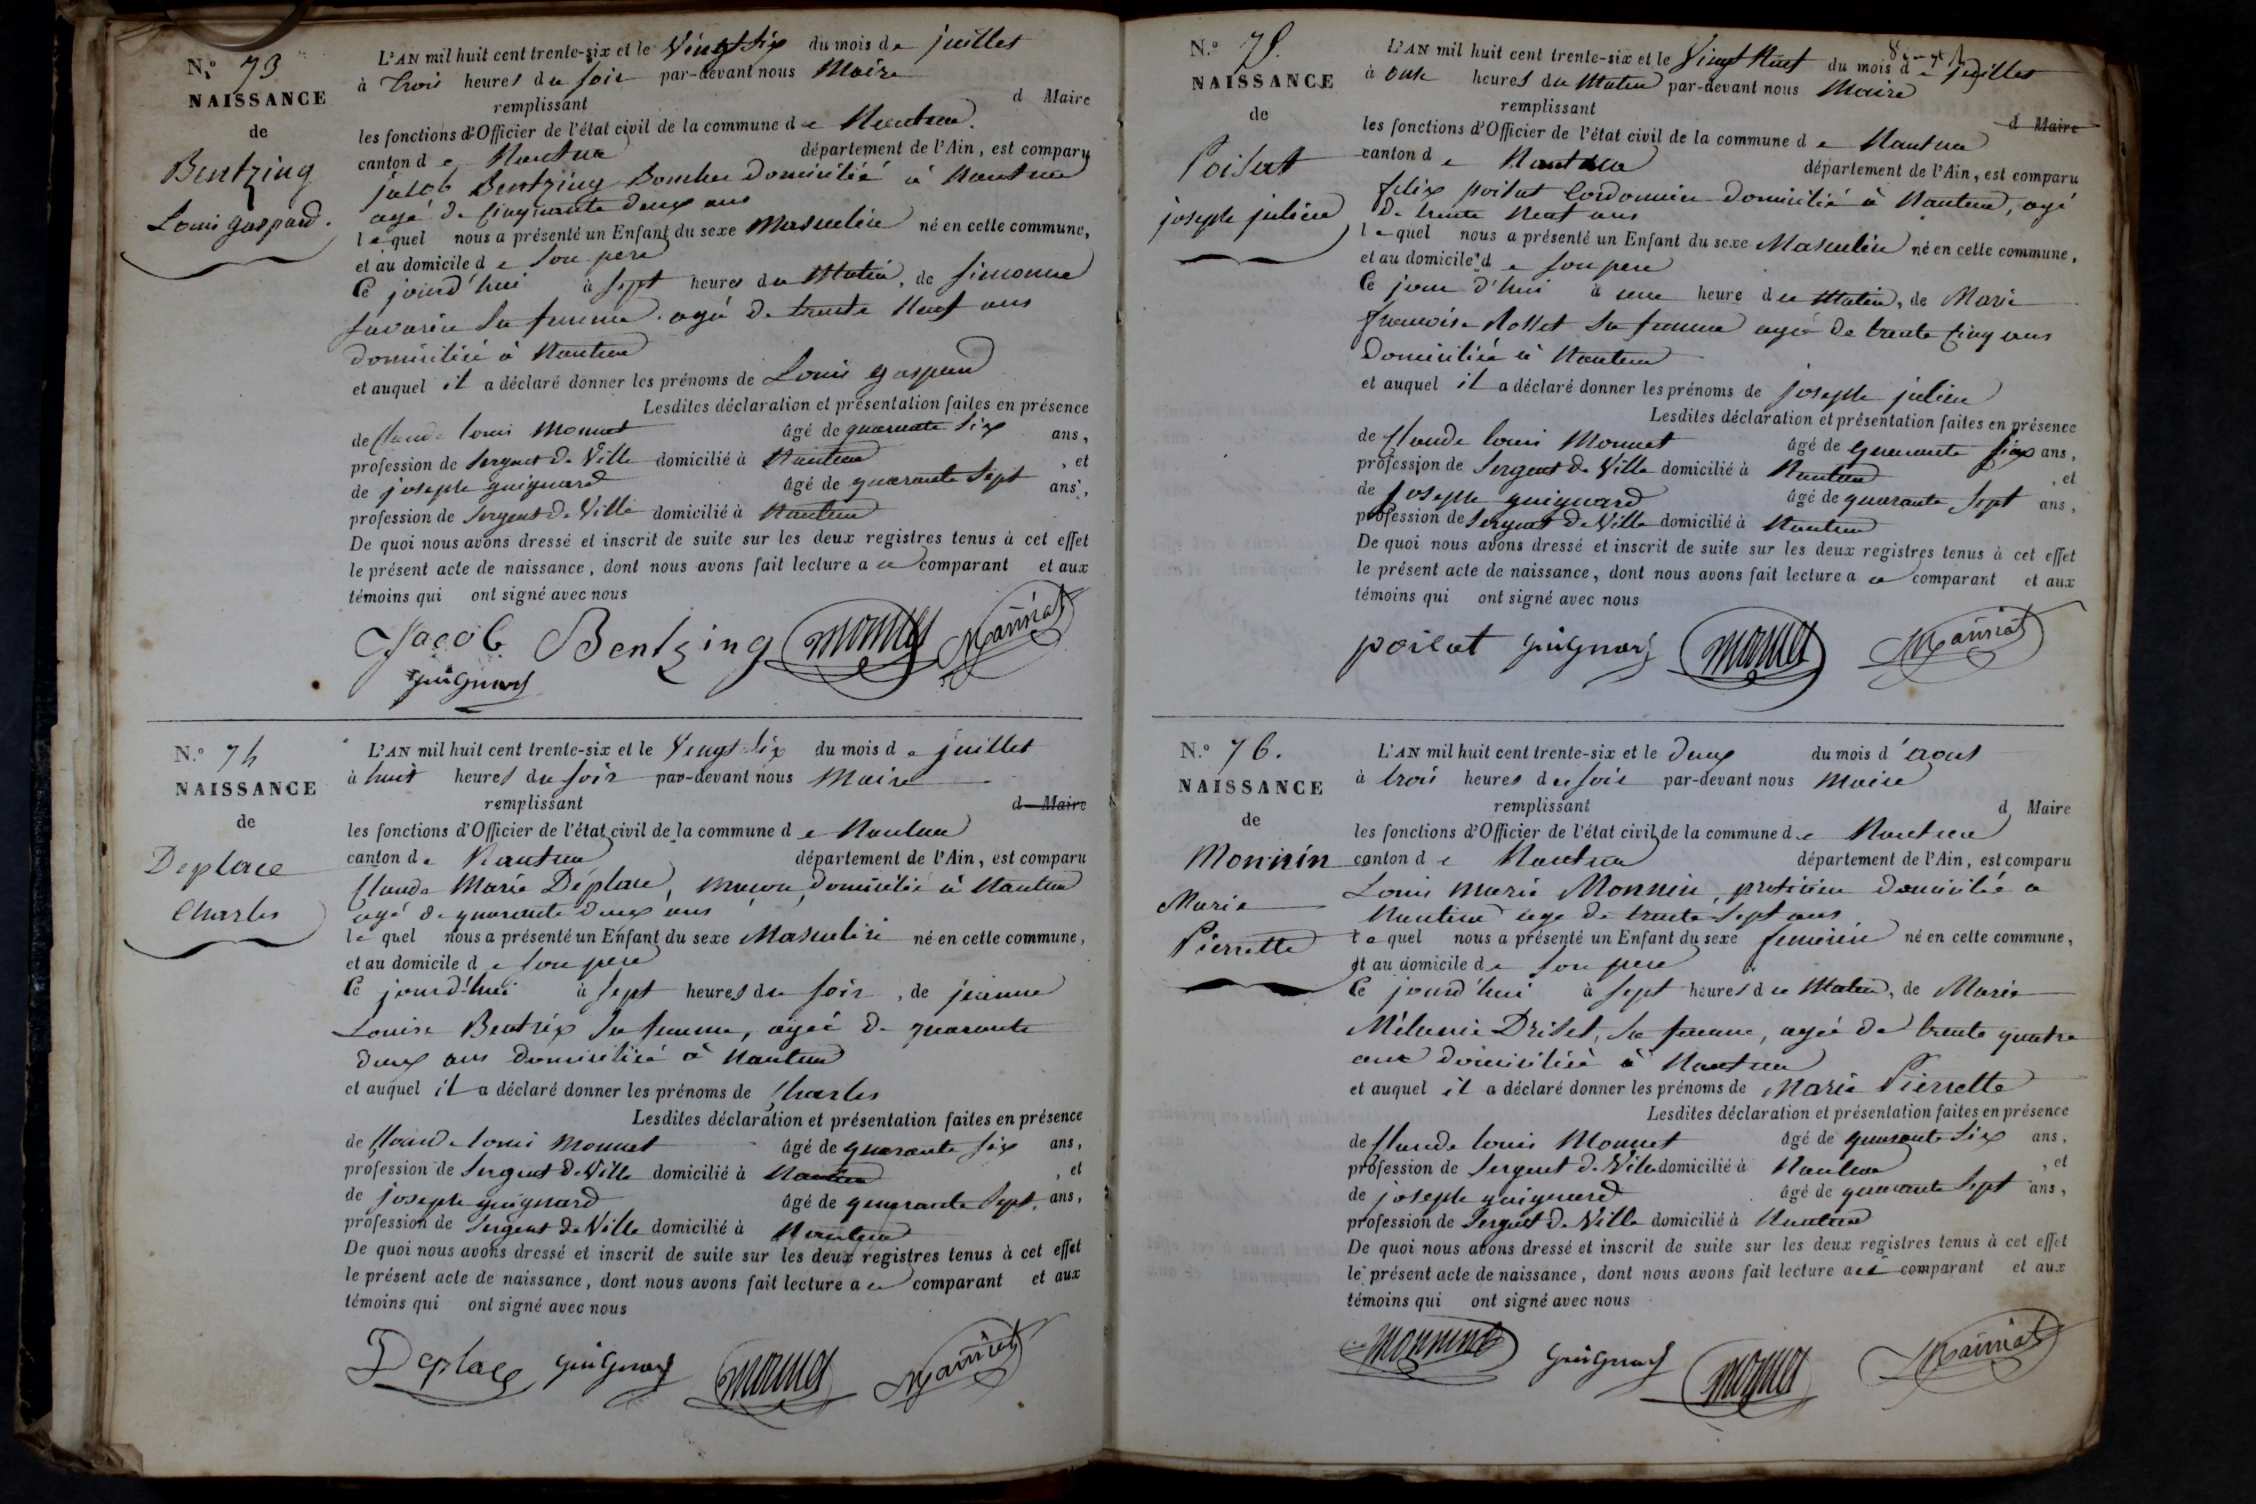 N.º 73
NAISSANCE
de
Bentzing
Louis gaspard.
L'AN mil huit cent trente-six et le Vingt six du mois de juillet
à trois heures du soir par-devant nous Maire
remplissant d Maire
les fonctions d'Officier de l'état civil de la commune de Nantua.
canton de Nantua département de l'Ain, est comparu
jacob Bentzing domicilié à Nantua
agé de Cinquante deux ans
lequel nous a présenté un Enfant du sexe Masculin né en cette commune,
et au domicile de son pere
Ce jourd'hui à sept heures du Matin, de simonne
savarin sa femme. agé de trente Neuf ans
domiciliée à Nantua
et auquel il a déclaré donner les prénoms de Louis gaspard
Lesdites déclaration et présentation faites en présence
de Claude louis Monnet âgé de quarante six ans,
profession de sergent de Ville domicilié à Nantua, et
de joseph guignard âgé de quarante sept ans,
profession de sergent de Ville domicilié à Nantua
De quoi nous avons dressé et inscrit de suite sur les deux registres tenus à cet effet
le présent acte de naissance, dont nous avons fait lecture a ce comparant et aux
témoins qui ont signé avec nous
Jacob Bentzing monnet
guignard
N.º 74
NAISSANCE
de
Deplace
Charles
L'AN mil huit cent trente-six et le Vingt six du mois de juillet
à huit heures du soir par-devant nous Maire
remplissant d Maire
les fonctions d'Officier de l'état civil de la commune de Nantua
canton de Nantua département de l'Ain, est comparu
Claude Marie Déplace, maçon, domicilié à Nantua
agé de quarante deux ans
lequel nous a présenté un Enfant du sexe Masculin né en cette commune,
et au domicile de son pere
Ce jourd'hui à sept heures du soir, de jeanne
Louise Beatrix sa femme, agée de quarante
deux ans domiciliée à Nantua
et auquel il a déclaré donner les prénoms de Charles
Lesdites déclaration et présentation faites en présence
de Claude louis Monnet âgé de quarante six ans,
profession de sergent de Ville domicilié à Nantua, et
de joseph guignard âgé de quarante sept, ans,
profession de sergent de Ville domicilié à Nantua
De quoi nous avons dressé et inscrit de suite sur les deux registres tenus à cet effet
le présent acte de naissance, dont nous avons fait lecture a ce comparant et aux
témoins qui ont signé avec nous
Deplace guignard monnet
N.º 75.
NAISSANCE
de
Poisat
joseph julien
L'AN mil huit cent trente-six et le Vingt Neuf du mois de juillet
à onze heures du Matin par-devant nous Maire
remplissant d Maire
les fonctions d'Officier de l'état civil de la commune de Nantua
canton de Nantua département de l'Ain, est comparu
felix poisat Cordonnier domicilié à Nantua, agé
de trente Neuf ans
lequel nous a présenté un Enfant du sexe Masculin né en cette commune,
et au domicile de son pere
Ce jour d'hui à une heure du Matin, de Marie
francoise Rosset sa femme agée de trente Cinq ans
domiciliée à Nantua
et auquel il a déclaré donner les prénoms de joseph julien
Lesdites déclaration et présentation faites en présence
de Claude louis Monnet âgé de quarante six ans,
profession de sergent de Ville domicilié à Nantua, et
de joseph guignard âgé de quarante sept ans,
profession de sergent de Ville domicilié à Nantua
De quoi nous avons dressé et inscrit de suite sur les deux registres tenus à cet effet
le présent acte de naissance, dont nous avons fait lecture a ce comparant et aux
témoins qui ont signé avec nous
poisat guignard monnet
N.º 76.
NAISSANCE
de
Monnin
Marie
Pierrette
L'AN mil huit cent trente-six et le deux du mois d'aout
à trois heures du soir par-devant nous Maire
remplissant d Maire
les fonctions d'Officier de l'état civil de la commune de Nantua
canton de Nantua département de l'Ain, est comparu
Louis marie Monnin, praticien domicilié a
Nantua age de trente sept ans
lequel nous a présenté un Enfant du sexe feminin né en cette commune,
et au domicile de son pere
Ce jourd'hui à sept heures du Matin, de Marie
Mélanie Drisel, sa femme, agée de trente quatre
ans domiciliée à Nantua
et auquel il a déclaré donner les prénoms de Marie Pierrette
Lesdites déclaration et présentation faites en présence
de Claude louis Monnet âgé de quarante six ans,
profession de sergent de Ville domicilié à Nantua, et
de joseph guignard âgé de quarante sept ans,
profession de sergent de Ville domicilié à Nantua
De quoi nous avons dressé et inscrit de suite sur les deux registres tenus à cet effet
le présent acte de naissance, dont nous avons fait lecture a ce comparant et aux
témoins qui ont signé avec nous
monnin guignard monnet